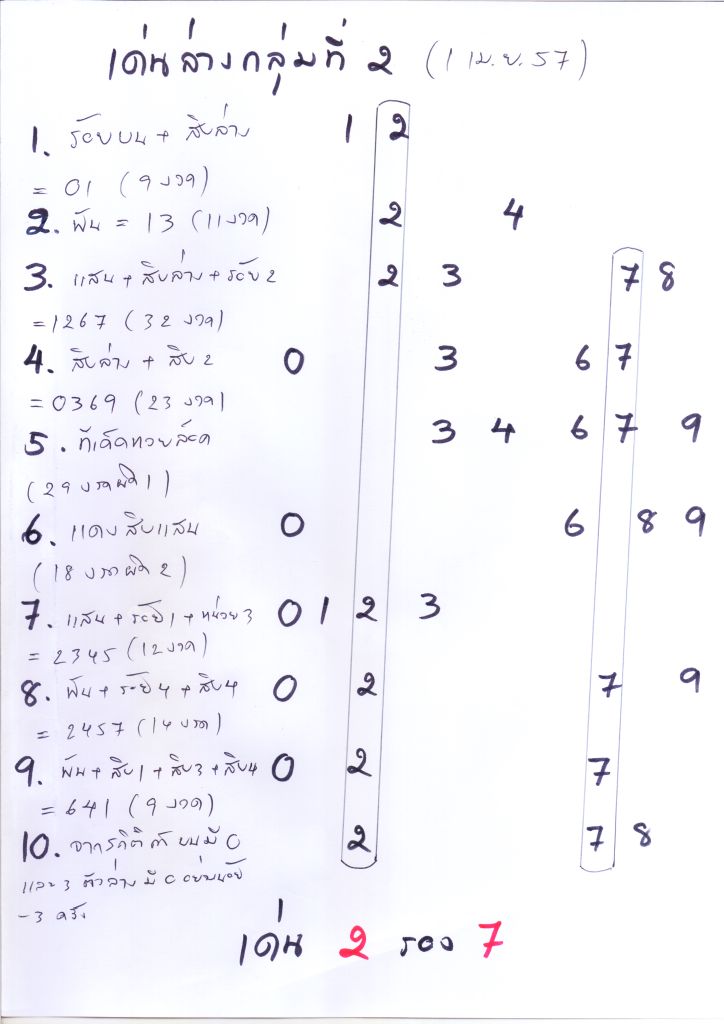 เด่นล่างกลุ่มที่ 2 (1 เม.ย. 57)
1. ร้อยบน + สิบล่าง 1 2
= 01 (9 งวด)
2. พัน = 13 (11 งวด) 2 4
3. แสน + สิบล่าง + ร้อย 2 2 3 7 8
= 1267 (32 งวด)
4. สิบล่าง + สิบ 2 0 3 6 7
= 0369 (23 งวด)
5. ทีเด็ดหวยล็อค 3 4 6 7 9
(29 งวดผิด 1)
6. แดงสิบแสน 0 6 8 9
(18 งวดผิด 2)
7. แสน + ร้อย 1 + หน่วย 3 0 1 2 3
= 2345 (12 งวด)
8. พัน + ร้อย 4 + สิบ 4 0 2 7 9
= 2457 (14 งวด)
9. พัน + สิบ 1 + สิบ 3 + สิบ 4 0 2 7
= 641 (9 งวด)
10. จากสถิติ บนมี 0 2 7 8
และ 3 ตัวล่างมี 0 อย่างน้อย
- 3 ครั้ง
เด่น 2 รอง 7